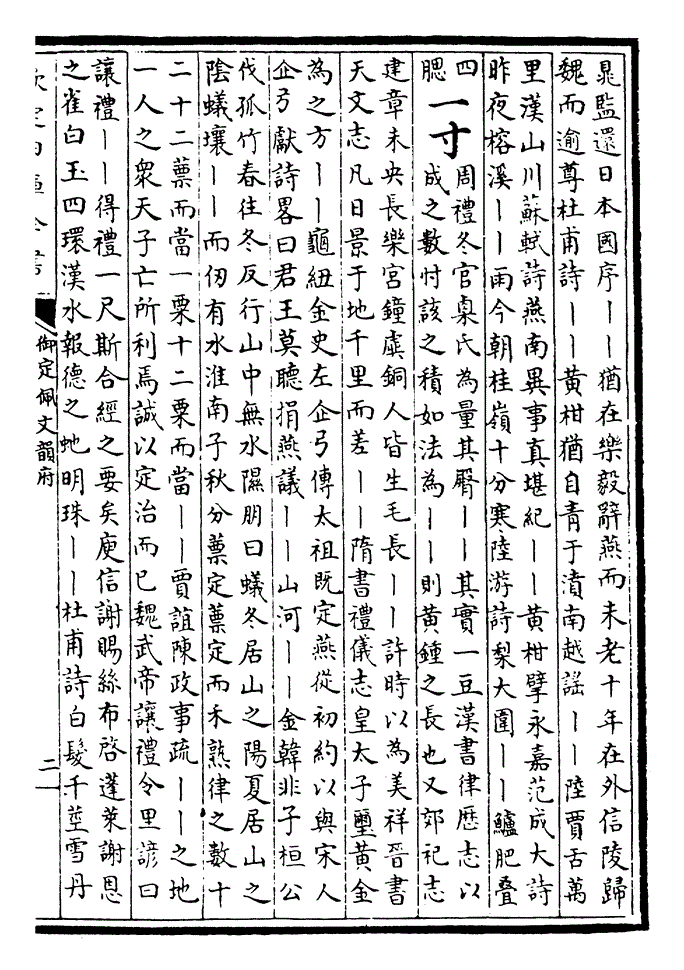 晁監還日本國序丨丨猶在樂毅辭燕而未老十年在外信陵歸
魏而逾尊杜甫詩丨丨黃柑猶自青于濆南越謡丨丨陸賈舌萬
里漢山川蘇軾詩燕南異事真堪紀丨丨黃柑擘永嘉范成大詩
昨夜榕溪丨丨雨今朝桂嶺十分寒陸游詩梨大圍丨丨鱸肥疊
四
腮
一寸
周禮冬官㮚氏為量其臋丨丨其實一豆漢書律厯志以
成之數忖該之積如法為丨丨則黃鍾之長也又郊祀志
建章未央長樂宮鐘虡銅人皆生毛長丨丨許時以為美祥晉書
天文志凡日景于地千里而差丨丨隋書禮儀志皇太子璽黃金
為之方丨丨龜紐金史左企弓傳太祖既定燕從初約以與宋人
企弓獻詩畧曰君王莫聽捐燕議丨丨山河丨丨金韓非子桓公
伐孤竹春往冬反行山中無水隰朋曰蟻冬居山之陽夏居山之
陰蟻壤丨丨而仞有水淮南子秋分蔈定蔈定而禾熟律之數十
二十二蔈而當一粟十二粟而當丨丨賈誼陳政事疏丨丨之地
一人之衆天子亡所利焉誠以定治而已魏武帝讓禮令里諺曰
讓禮丨丨得禮一尺斯合經之要矣庾信謝賜絲布啓蓬萊謝恩
之雀白玉四環漢水報德之虵明珠丨丨杜甫詩白髮千莖雪丹
御定佩文韻府
二